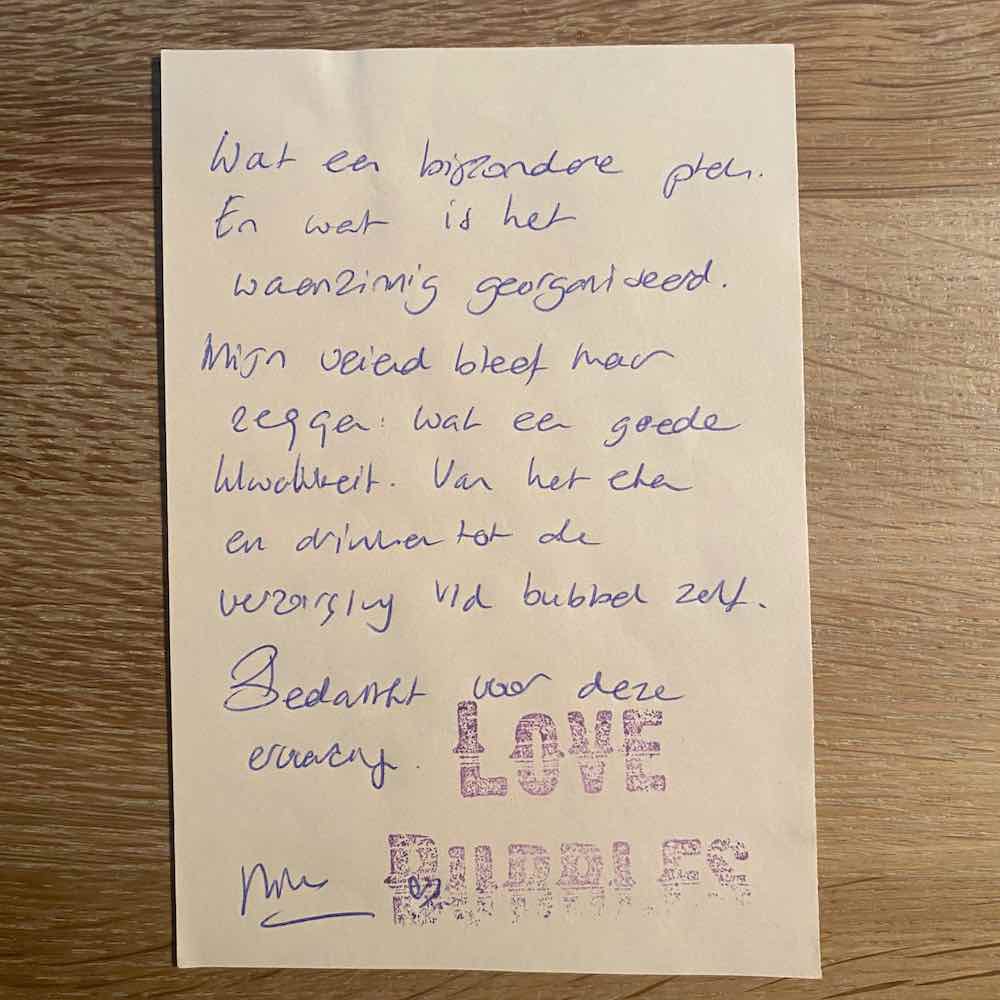 Wat een bijzondere plek.
En wat is het
waanzinnig georganiseerd.
Mijn vriend bleef maar
zeggen: wat een goede
kwaliteit. Van het eten
en drinken tot de
verzorging v/d bubbel zelf.
Bedankt voor deze
ervaring.
LOVE
BUBBLES